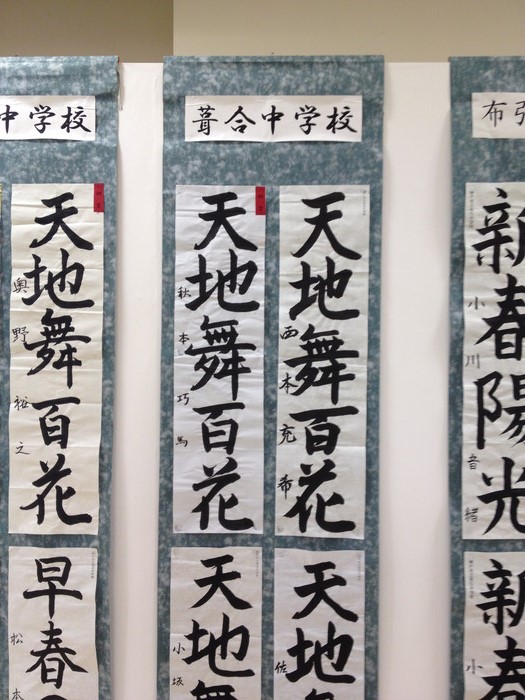 中学校
天地舞百花
奥野祐之
早春
松本
葺合中学校
天地舞百花
秋本巧馬
天地舞百花
西本充希
天地舞
小坂
天地舞
佐
布引
新春陽光
小川音緒
新春
小